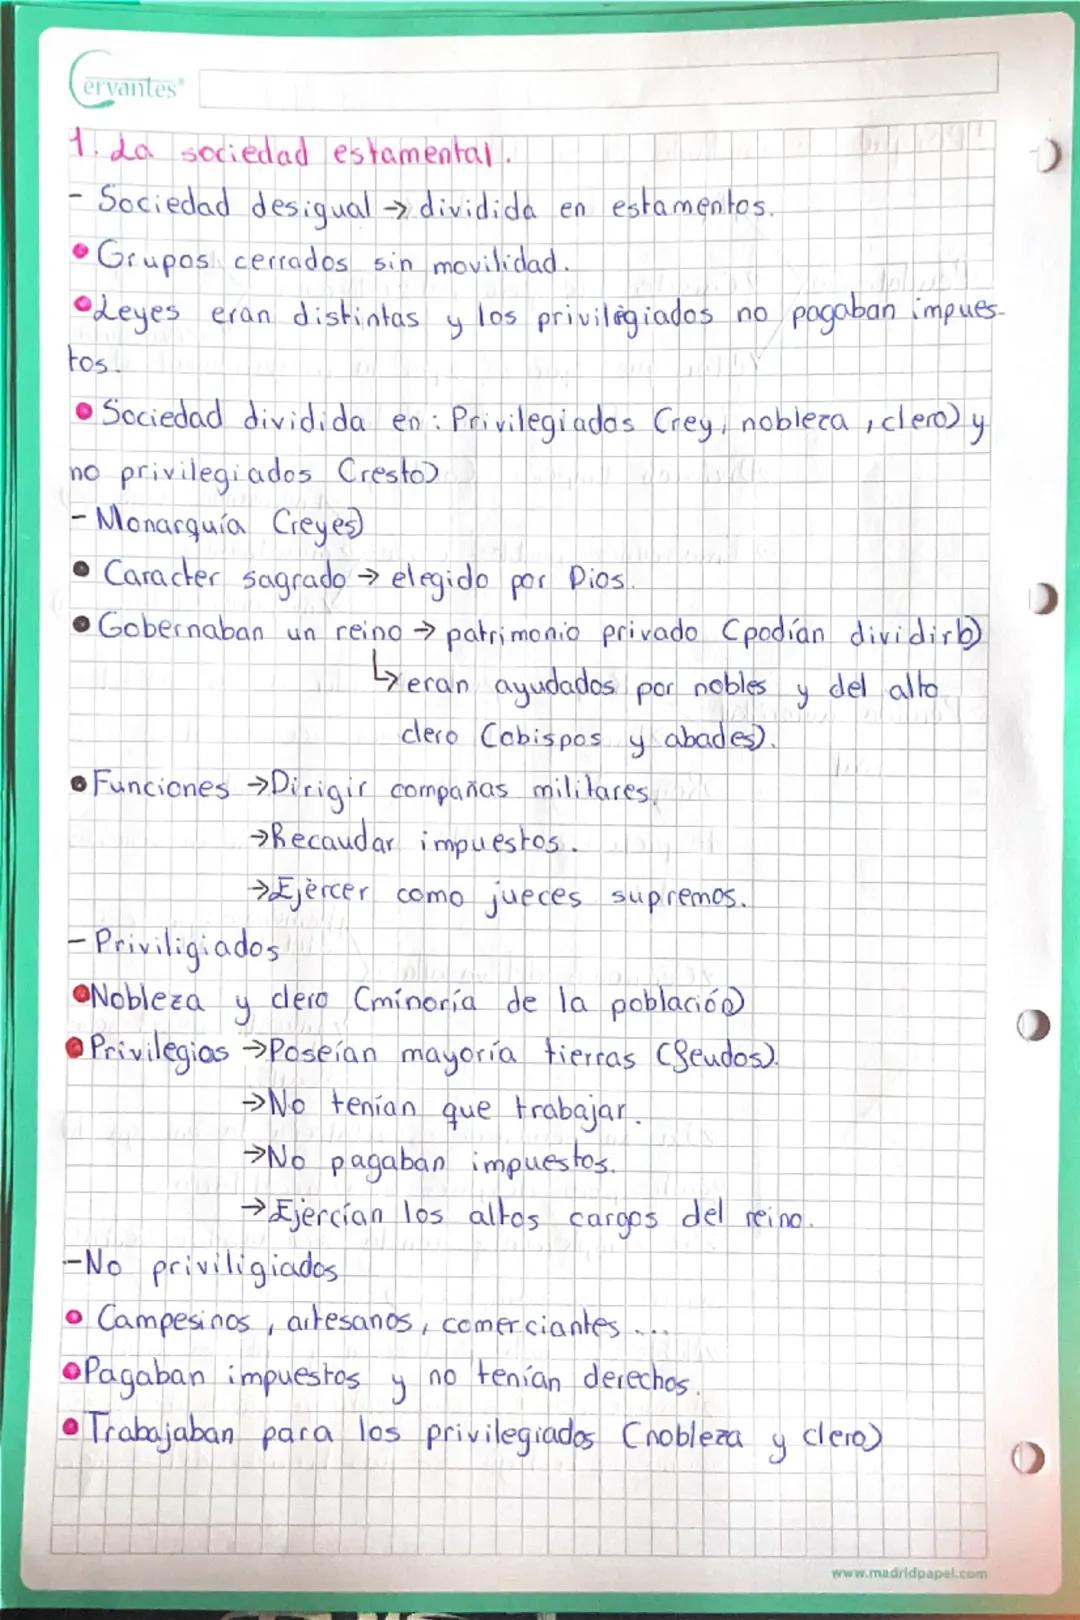 Cervantes®
1. La sociedad estamental.
- Sociedad desigual → dividida en estamentos.
• Grupos cerrados sin movilidad.
• Leyes eran distintas y los privilegiados no pagaban impues-
tos.
• Sociedad dividida en: Privilegiados (rey, nobleza, clero) y
no privilegiados (resto)
- Monarquía (reyes)
• Caracter sagrado → elegido por Dios.
• Gobernaban un reino → patrimonio privado (podían dividirlo)
↳ eran ayudados por nobles y del alto
clero (obispos y abades).
• Funciones → Dirigir compañas militares.
→ Recaudar impuestos.
→ Ejercer como jueces supremos.
- Priviligiados
• Nobleza y clero (minoría de la población)
• Privilegios → Poseían mayoría tierras (feudos).
→ No tenían que trabajar.
→ No pagaban impuestos.
→ Ejercían los altos cargos del reino.
- No priviligiados
• Campesinos, artesanos, comerciantes ...
• Pagaban impuestos y no tenían derechos.
• Trabajaban para los privilegiados (nobleza y clero)
www.madridpapel.com